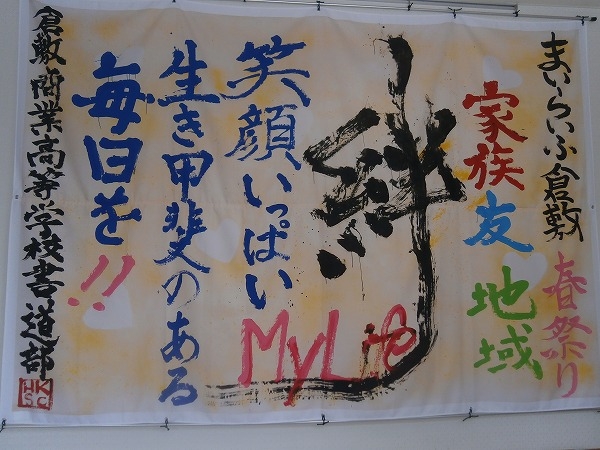 まいらいふ倉敷
春祭り
家族
友
地域
絆
MyLife
笑顔いっぱい
生き甲斐のある
毎日を!!
倉敷商業高等学校書道部
HK
SC